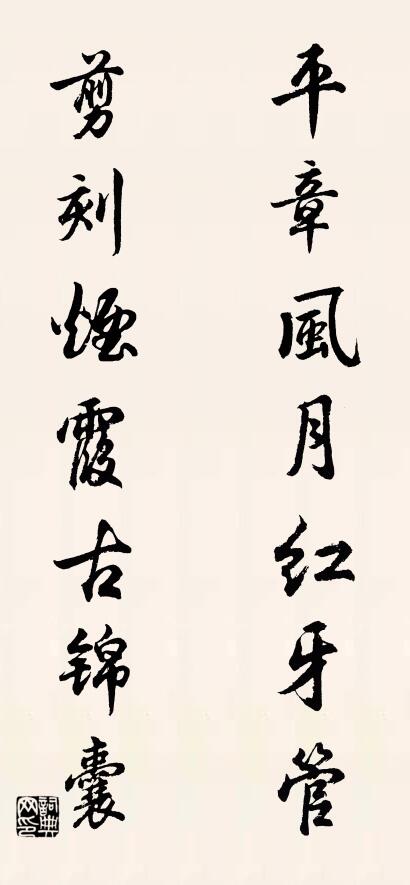 平章風月红牙管
剪刻煙霞古锦囊
詞典网印